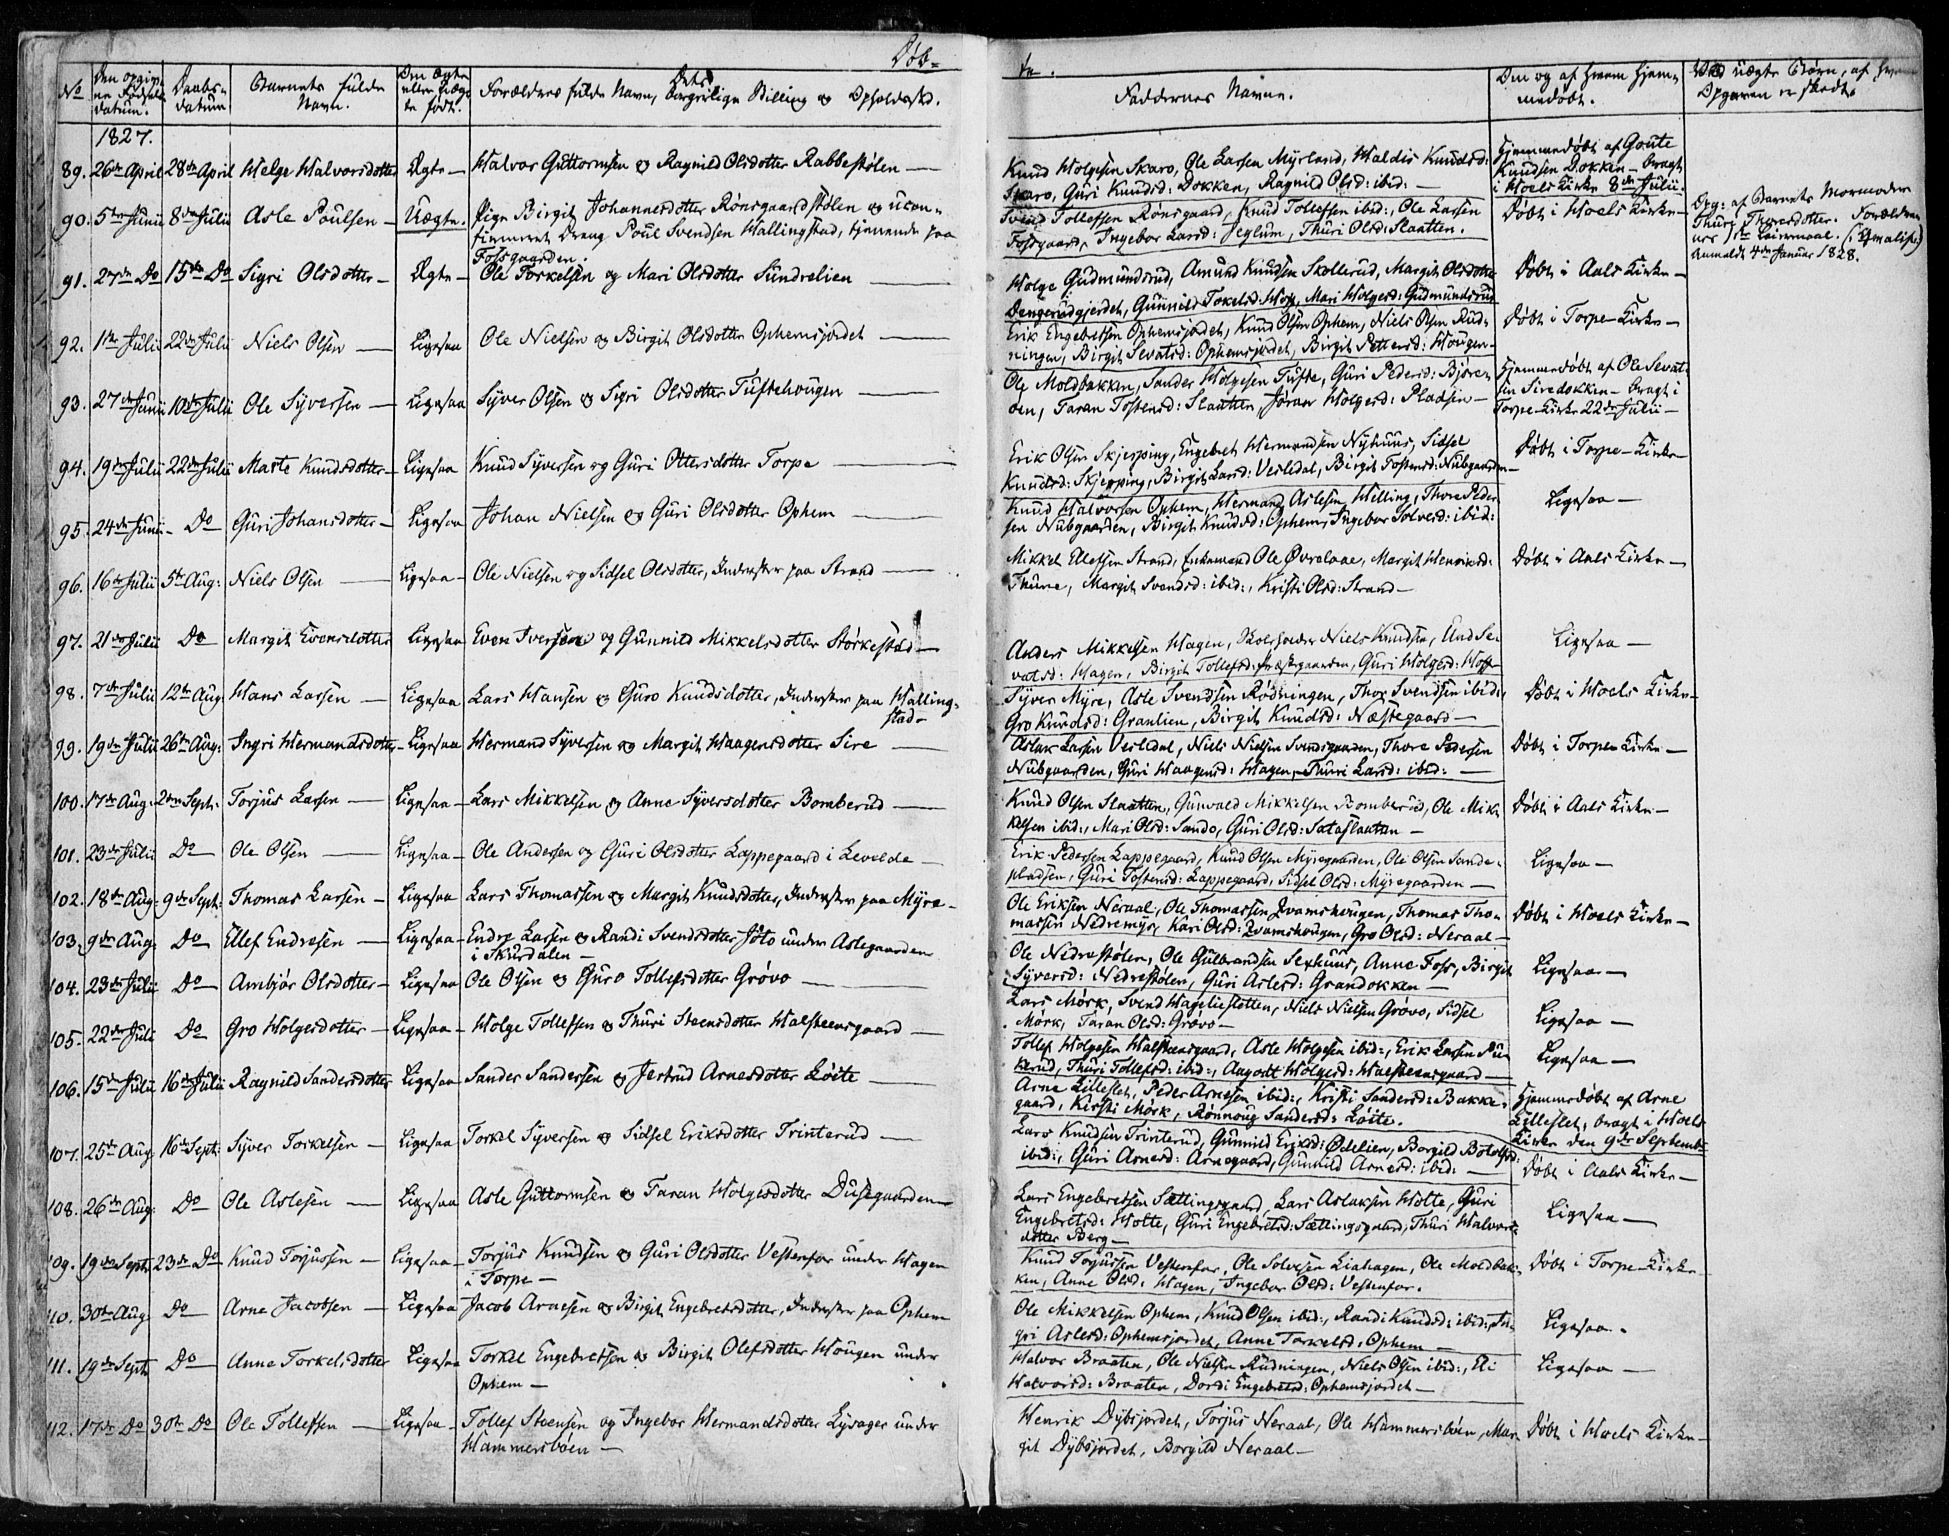 Døb-
te.
No
Den opgivne Fødselsdatum.
Daabsdatum
Barnets fulde Navn.
Om ægte eller uægte født.
Forældres fulde Navn, Dets borgerlige Stilling og Opholdssted.
Faddernes Navne.
Om og af hvem hjemmedøbt.
Ved uægte Børn, af hvem Opgaven er skedt.
1827.
89. 26de April 28de April Helge Halvorsdotter Ægte – Halvor Guttormsen og Ragnild Olsdotter Rabbestølen –
Knud Holgesen Skaro, Ole Larsen Myrland, Haldis Knudsd:
Skaro, Guri Knudsd: Dokken, Ragnild Olsd: ibid: –
Hjemmedøbt af Goute
Knudsen Dokken – bragt
i Hoels Kirke 8de Julii.
90. 5te Junii 8de Julii Asle Poulsen – Uægte. Pige Birgit Johannesdotter Rønsgaardstølen og ucon-
firmeret Dreng Poul Svendsen Hallingstad, tjenende paa
Fossgaarden.
Svend Tollefsen Rønsgaard, Knud Tollefsen ibid:, Ole Larsen
Fossgaard, Ingebor Larsd: Seglum, Thuri Olsd: Slaatten.
Døbt i Hoels Kirke –
Opg: af Barnets Mormoder
Thuri Thoresdotter. Forældrenes 1ste Leiermaal.
Anmeldt 4de Januar 1828.
91. 27de Do 15de Do Sigri Olsdotter – Ægte – Ole Torkelsen og Mari Olsdotter Sundrelien –
Holge Gudmundsrud, Amund Knudsen Skollerud, Margit Olsdotter
Dengerudgjerdet, Gunnild Tokelsd: Hove, Mari Holgesd: Gudmundsrud
Døbt i Aals Kirke –
92. 1ste Julii 22de Julii Niels Olsen – Ligesaa Ole Nielsen og Birgit Olsdotter Ophemsjordet –
Erik Engebretsen Ophemsjordet, Knud Olsen Ophem, Niels Olsen Rud-
ningen, Birgit Sevatsd: Ophemsjordet, Birgit Pettersd: Hougen –
Døbt i Torpe Kirke –
93. 27de Junii 10de Julii Ole Syversen – Ligesaa Syver Olsen og Sigri Olsdotter Tuftehougen –
Ole Moldbakken, Sander Holgesen Tufte, Guri Pedersd: Bjøre-
øen, Taran Tostensd: Slaatten, Jøran Holgesd: Pladsen –
Hjemmedøbt af Ole Sevat-
sen Siredokken – bragt i
Torpe Kirke 22de Julii –
94. 19de Julii 22de Julii Marte Knudsdotter – Ligesaa Knud Syversen og Guri Ottersdotter Torpe –
Erik Olsen Skjerping, Engebret Hermandsen Nyhuus, Sidsel
Knudsd: Skjerping, Birgit Larsd: Vesledal, Birgit Tostensd: Nubgaarden –
Døbt i Torpe Kirke –
95. 24de Junii – Do Guri Johansdotter – Ligesaa Johan Nielsen og Guri Olsdotter Ophem –
Knud Halvorsen Ophem, Hermand Aslesen Helling, Thore Peder-
sen Nubgaarden, Birgit Knudsd: Ophem, Ingebor Solvesd: ibid:
Ligesaa –
96. 16de Julii 5te Aug: Niels Olsen – Ligesaa – Ole Nielsen og Sidsel Olsdotter, Inderster paa Strand –
Mikkel Ellefsen Strand, Enkemand Ole Øvrelaae, Margit Henriksd:
Thune, Margit Svendsd: ibid:, Kristi Olsd: Strand –
Døbt i Aals Kirke –
97. 21de Julii Do Margit Evensdotter Ligesaa Even Iversen og Gunnild Mikkelsdotter Størkestad –
Anders Mikkelsen Hagen, Skoleholder Niels Knudsen, Und Se-
vatsd: Hagen, Birgit Tollefsd: Præstegaarden, Guri Holgesd: Hoff –
Ligesaa –
98. 7de Julii 12te Aug Hans Larsen – Ligesaa Lars Hansen og Guro Knudsdotter, Inderster paa Halling-
stad –
Syver Myre, Asle Svendsen Rødningen, Thor Svendsen ibid:,
Gro Knudsd: Granlien, Birgit Knudsd: Næstegaard –
Døbt i Hoels Kirke –
99. 19de Julii 26de Aug: Ingri Hermandsdotter – Ligesaa Hermand Syversen og Margit Haagensdotter Sire –
Aslak Larsen Vesledal, Niels Nielsen Svendsgaarden, Thore Pedersen
Nubgaarden, Guri Haagensd: Hagen, Thuri Larsd: ibid: –
Døbt i Torpe Kirke –
100. 17de Aug: 2den Sept: Torjus Larsen – Ligesaa – Lars Mikkelsen og Anne Syversdotter Bomberud –
Knud Olsen Slaatten, Gunvald Mikkelsen Bomberud, Ole Mik-
kelsen ibid:, Mari Olsd: Sando, Guri Olsd: Sataslaatten –
Døbt i Aals Kirke –
101. 23de Julii Do Ole Olsen – Ligesaa – Ole Andersen og Guri Olsdotter Lappegaard i Levelde –
Erik Pedersen Lappegaard, Knud Olsen Myregaarden, Ole Olsen Sande-
pladsen, Guri Tostensd: Lappegaard, Sidsel Olsd: Myregaarden –
Ligesaa –
102. 18de Aug: 9de Sept: Thomas Larsen – Ligesaa Lars Thomassen og Margit Knudsdotter, Inderster paa Myre –
Ole Eriksen Neraal, Ole Thomassen Qvamshougen, Thomas Tho-
massen Nedremyr, Kari Olsd: Qvamshougen, Gro Olsd: Neraal –
Døbt i Hoels Kirke –
103. 9de Aug: Do Ellef Endresen – Ligesaa – Endre Larsen og Randi Svendsdotter Jøto under Aslegaarden
i Skurdalen –
Ole Nedrestølen, Ole Gulbrandsen Sexhuus, Anne Foss, Birgit
Syversd: Nedrestølen, Guri Aslesd: Grandokken –
Ligesaa –
104. 23de Julii Do Ambjør Olsdotter – Ligesaa Ole Olsen og Guro Tollefsdotter Grøvo –
Lars Mørk, Svend Hagelieslotten, Niels Nielsen Grøvo, Sidsel
Mørk, Taran Olsd: Grøvo –
Ligesaa –
105. 22de Juli Do Gro Holgesdotter – Ligesaa – Holge Tollefsen og Thuri Steensdotter Halsteensgaard –
Tollef Holgesen Halsteensgaard, Asle Holgesen ibid:, Erik Larsen Pu-
kerud, Thuri Tollefsd: ibid:, Aagodt Holgesd: Halsteensgaard –
Ligesaa –
106. 15de Julii 16de Julii Ragnild Sandersdotter Ligesaa Sander Sandersen og Jertrud Arnesdotter Løite –
Arne Lilleslet, Peder Arnesen ibid:, Kristi Sandersd: Bakke-
gaard, Kirsti Mørk, Rønnoug Sandersd: Løite.
Hjemmedøbt af Arne
Lilleslet, bragt i Hoels
Kirke den 9de September
107. 25de Aug: 16de Sept: Syver Torkelsen – Ligesaa – Torkel Syversen og Sidsel Eriksdotter Trinterud –
Lars Knudsen Trinterud, Gunnild Eriksd: Ødelien, Borgild Botolfsd:
ibid:, Guri Arnesd: Arnegaard, Gunnild Arnesd: ibid: –
Døbt i Aals Kirke –
108. 26de Aug: Do Ole Aslesen – Ligesaa Asle Guttormsen og Taran Holgesdotter Dusegaarden
Lars Engebretsen Sættingsgaard, Lars Aslaksen Holte, Guri
Engebretsd: Holte, Guri Engebretsd: Sættingsgaard, Thuri Halvors-
dotter Berg –
Ligesaa –
109. 19de Sept: 23de Do Knud Torjussen – Ligesaa – Torjus Knudsen og Guri Olsdotter Vestenfor under Hagen
i Torpe –
Knud Torjussen Vestenfor, Ole Solvesen Liahagen, Ole Moldbak-
ken, Anne Olsd: Hagen, Ingebor Olsd: Vestenfor.
Døbt i Torpe Kirke –
110. 30te Aug: Do Arne Jacobsen – Ligesaa – Jacob Arnesen og Birgit Engebretsdotter, Inderster paa Ophem
Ole Mikkelsen Ophem, Knud Olsen ibid:, Randi Knudsd: ibid:, In-
gri Aslesd: Ophemsjordet, Anne Torkelsd: Ophem –
Ligesaa –
111. 19de Sept: Do Anne Torkelsdotter Ligesaa Torkel Engebretsen og Birgit Olefsdotter Hougen under
Ophem –
Halvor Braaten, Ole Nielsen Rudningen, Niels Olsen ibid:, Eli
Halvorsd: Braaten, Dordi Engebretsd: Ophemsjordet –
Ligesaa –
112. 17de Do 30te Do Ole Tollefsen – Ligesaa – Tollef Steensen og Ingebor Hermandsdotter Lysager under
Hammersbøen –
Henrik Dybsjordet, Torjus Neraal, Ole Hammersbøen, Mar-
git Dybsjordet, Borgild Neraal –
Døbt i Hoels Kirke –